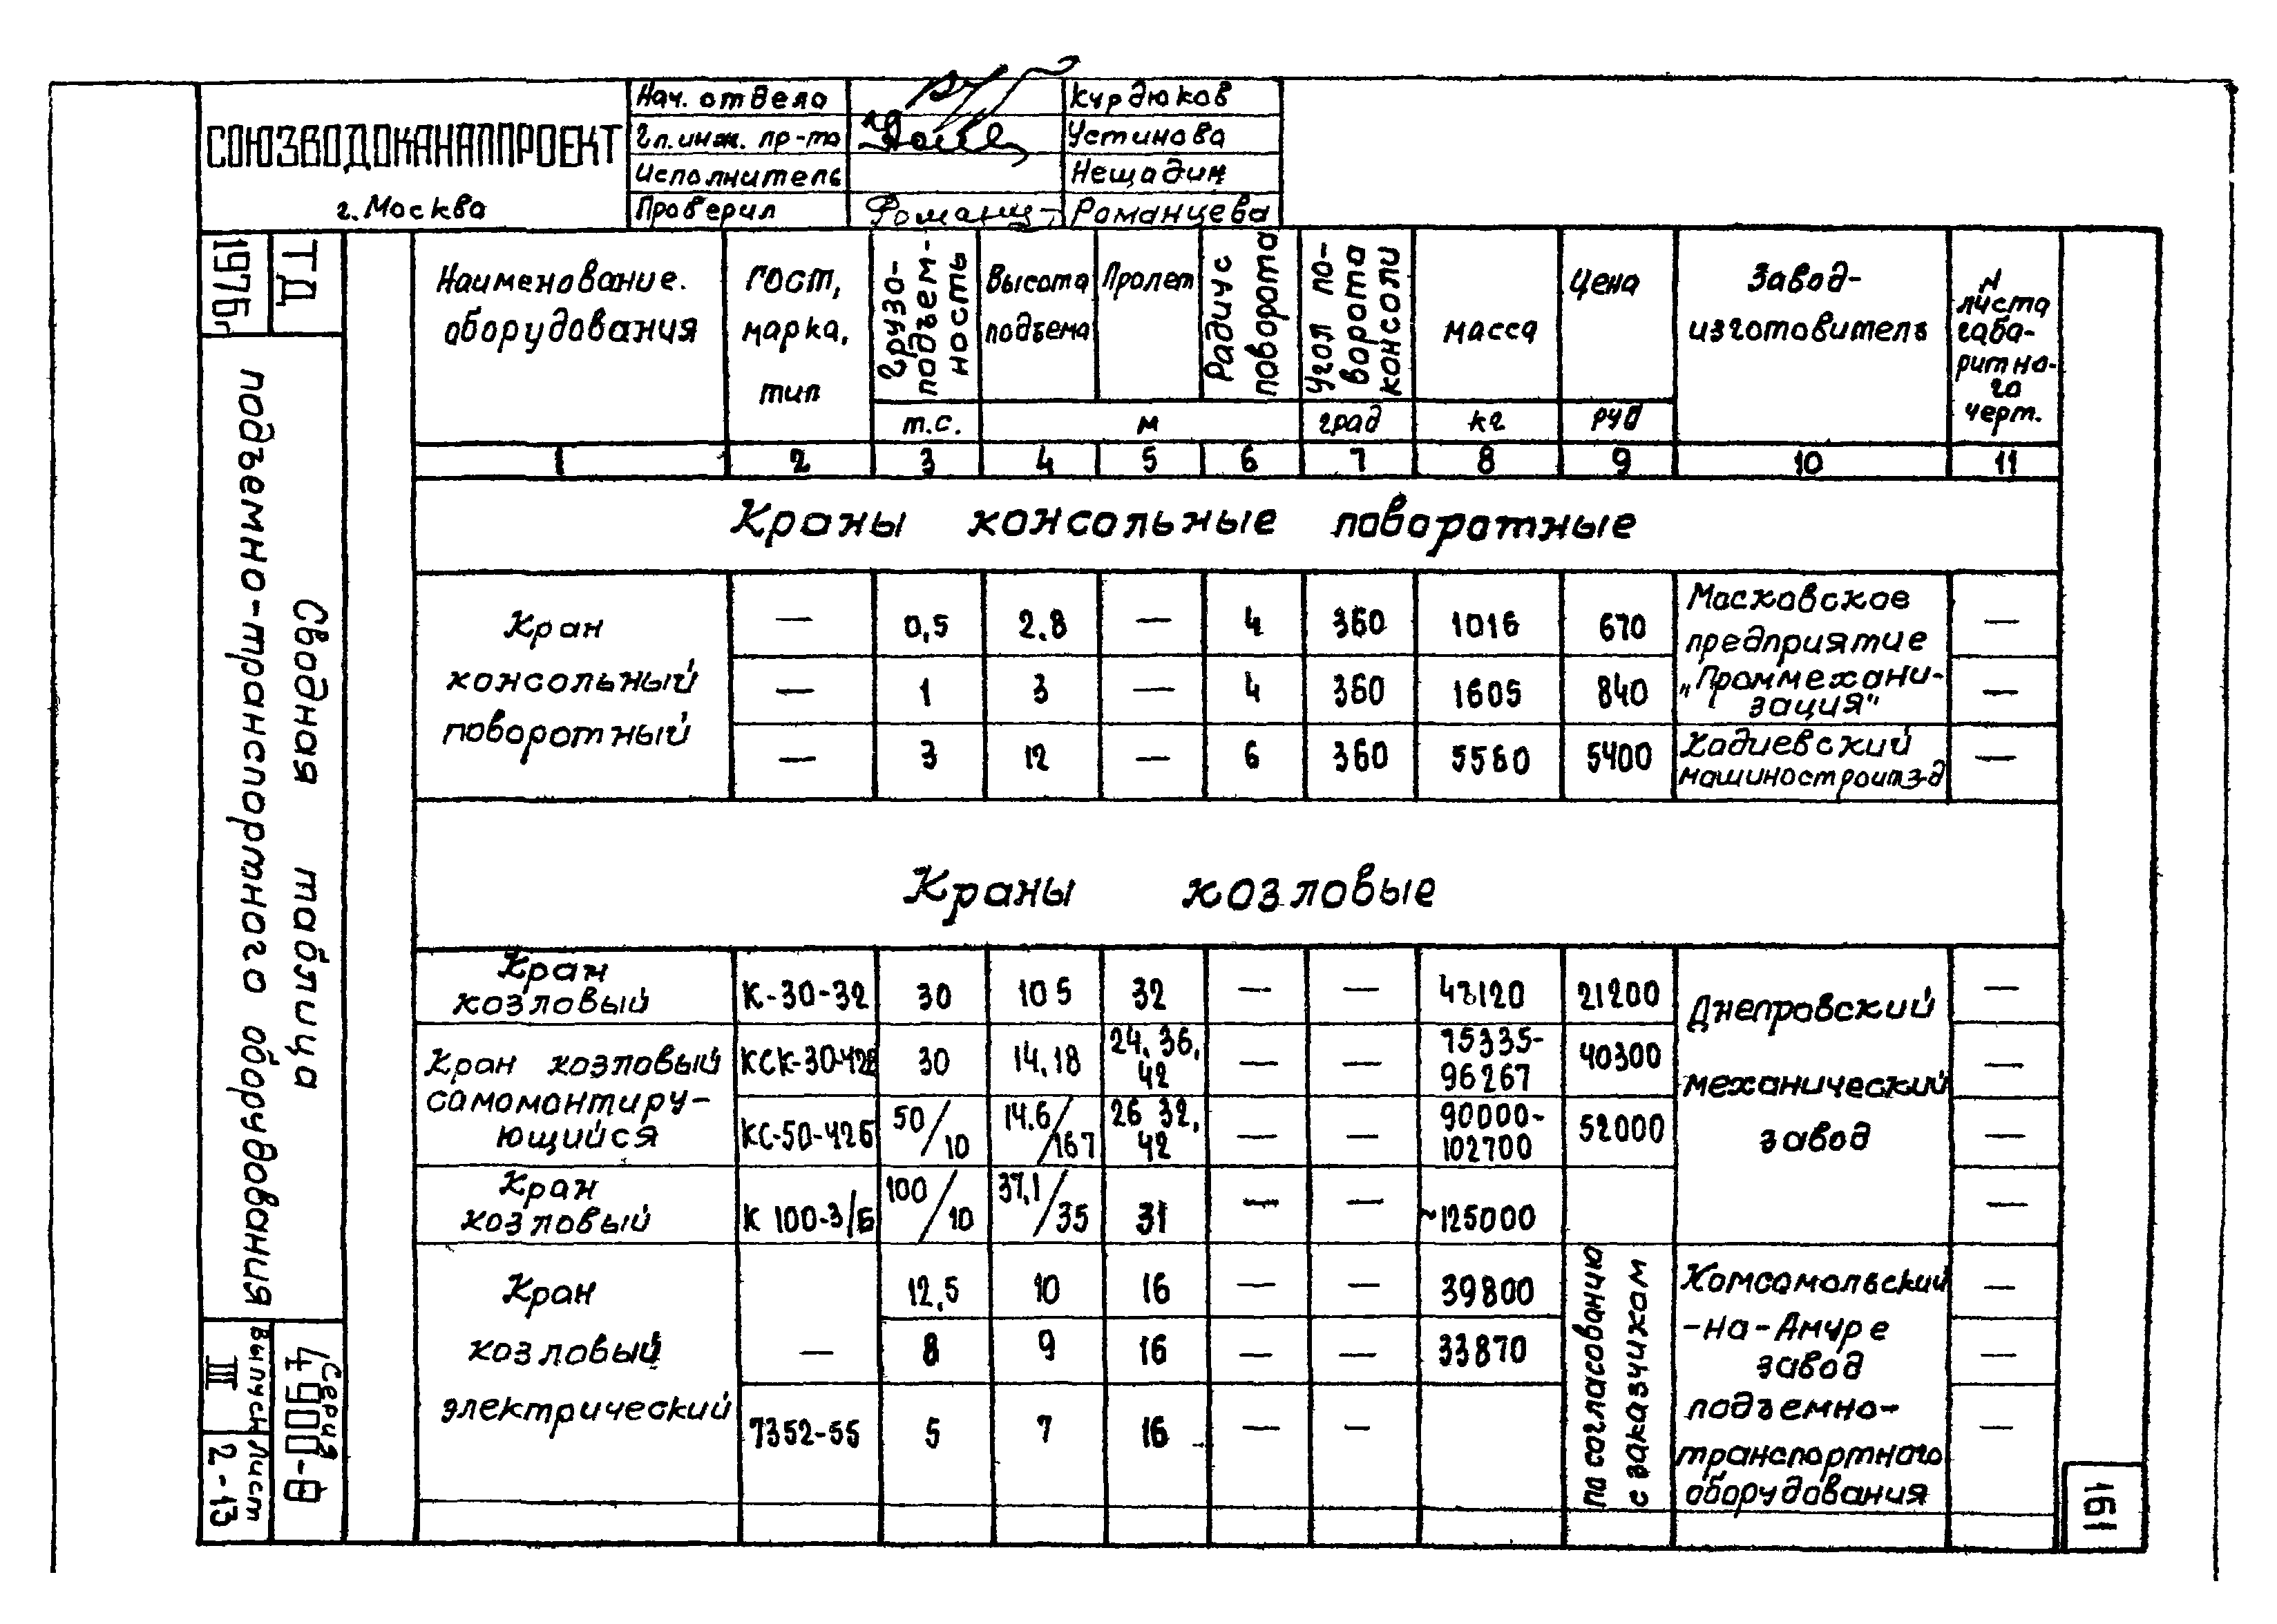 СОЮЗВОДОКАНАЛПРОЕКТ
г. Москва
Нач. отдела Курдюков
Гл. инж. пр-та Устинова
Исполнитель Нещадин
Проверил Романц Романцева
1976г
ТД
Сводная таблица
подъемно-транспортного оборудования
Серия 4.900-8
Выпуск III
Лист 2-13
Наименование оборудования
ГОСТ, марка, тип
Грузо-подъем-ность
Высота подъема
Пролет
Радиус поворота
Угол по-ворота консоли
масса
Цена
Завод-изготовитель
N листа габа-ритно-го черт.
т.с. м град кг руб
1 2 3 4 5 6 7 8 9 10 11
Краны консольные поворотные
Кран консольный поворотный
— 0,5 2.8 — 4 360 1016 670 —
— 1 3 — 4 360 1605 840 —
Московское предприятие „Проммехани-зация"
— 3 12 — 6 360 5560 5400 —
Хадиевский машиностроит з-д
Краны козловые
Кран козловый К-30-32 30 10 5 32 — — 48120 21200 —
Кран козловый самомонтиру-ющийся
КСК-30-42В 30 14,18 24, 36, 42 — — 75335-96267 40300 —
КС-50-42Б 50/10 14.6/167 26 32, 42 — — 90000-102700 52000 —
Кран козловый К 100-3/Б 100/10 37,1/35 31 — — ~125000 —
Днепровский механический завод
Кран козловый электрический
12,5 10 16 — — 39800 —
— 8 9 16 — — 33870 —
7352-55 5 7 16 — — —
по согласованию с заказчиком
Комсомольский
-на-Амуре
завод
подъемно-
транспортного
оборудования
161